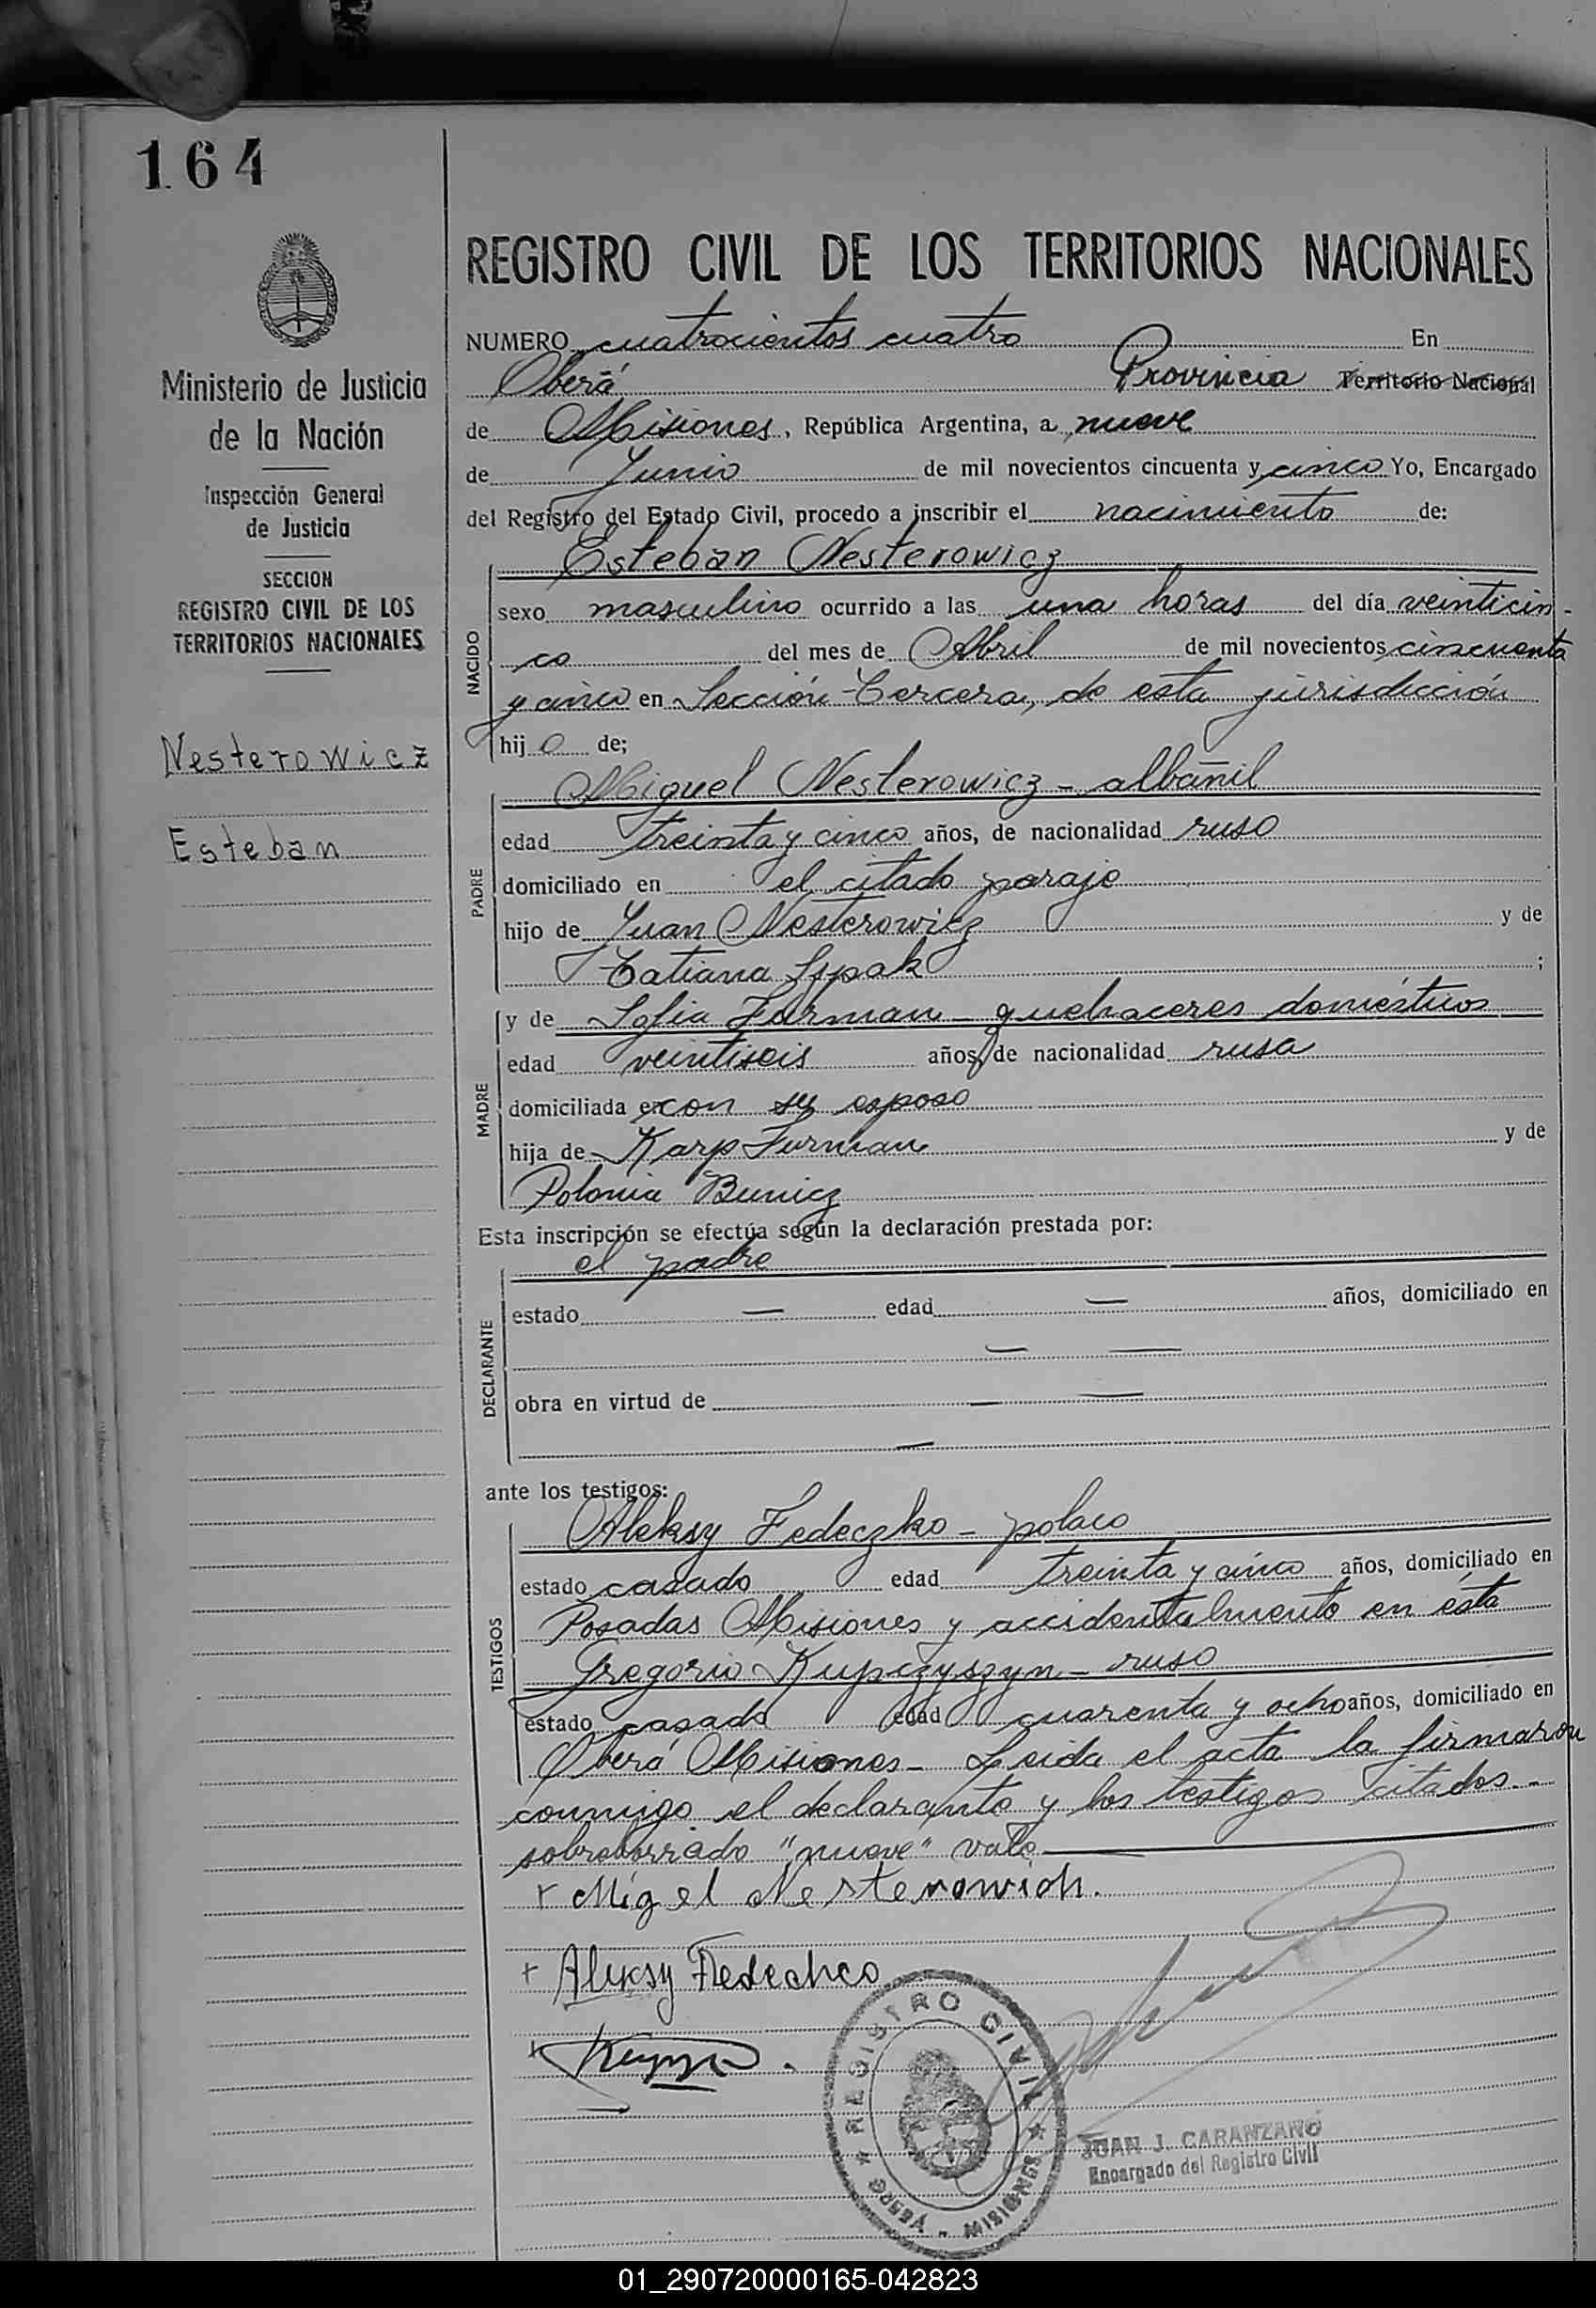 164
Ministerio de Justicia
de la Nación
Inspección General
de Justicia
SECCION
REGISTRO CIVIL DE LOS
TERRITORIOS NACIONALES
Nesterowicz
Esteban
REGISTRO CIVIL DE LOS TERRITORIOS NACIONALES
NUMERO cuatrocientos cuatro En
Oberá Provincia Territorio Nacional
de Misiones, República Argentina, a nueve
de Junio de mil novecientos cincuenta y cinco Yo, Encargado
del Registro del Estado Civil, procedo a inscribir el nacimiento de:
NACIDO
Esteban Nesterowicz
sexo masculino ocurrido a las una horas del día veinticin-
co del mes de Abril de mil novecientos cincuenta
y cinco en Sección Tercera, de esta jurisdicción
hijo de;
PADRE
Miguel Nesterowicz - albañil
edad treinta y cinco años, de nacionalidad ruso
domiciliado en el citado paraje
hijo de Juan Nesterowicz y de
Tatiana Sypak ;
MADRE
y de Sofia Furman - quehaceres domésticos
edad veintiseis años, de nacionalidad rusa
domiciliada en con su esposo
hija de Karp Furman y de
Polonia Bunicz
Esta inscripción se efectúa según la declaración prestada por:
DECLARANTE
el padre
estado — edad — años, domiciliado en
— —
obra en virtud de — —
—
ante los testigos:
TESTIGOS
Aleksy Fedeczko - polaco
estado casado edad treinta y cinco años, domiciliado en
Posadas Misiones y accidentalmente en ésta
Gregorio Kupczyszyn - ruso
estado casado edad cuarenta y ocho años, domiciliado en
Oberá Misiones - Leida el acta la firmaron
conmigo el declarante y los testigos citados.-
sobreborrado "nueve" vale
+ Migel Nesterowich.
+ Aleksy Fiedechco
REGISTRO CIVIL
OBERA - MISIONES
JUAN J. CARANZANO
Encargado del Registro Civil
01_290720000165-042823